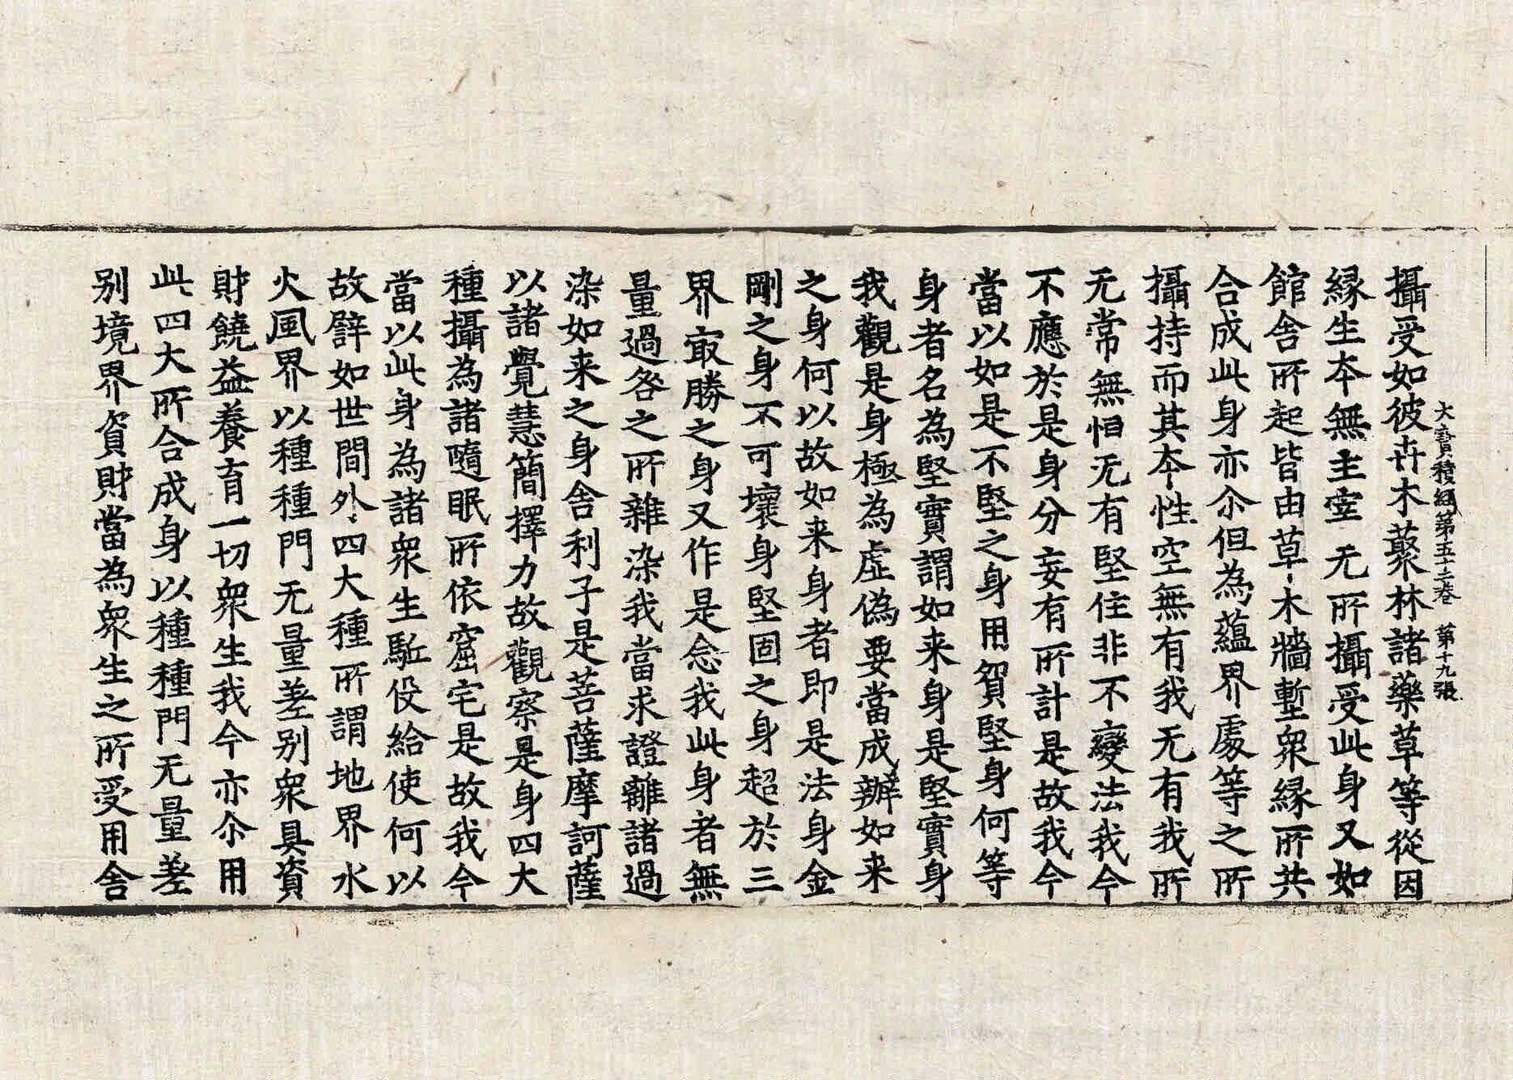 大寶積經第五十三卷 第十九張
攝受如彼卉木藂林諸藥草等從因
縁生夲無主宰无所攝受此身又如
館舍所起皆由草木牆塹衆縁所共
合成此身亦尒但為蘊界處等之所
攝持而其夲性空無有我无有我所
无常無恒无有堅住非不變法我今
不應於是身分妄有所計是故我今
當以如是不堅之身用貿堅身何等
身者名為堅實謂如来身是堅實身
我觀是身極為虛偽要當成辦如来
之身何以故如来身者即是法身金
剛之身不可壞身堅固之身超於三
界㝡勝之身又作是念我此身者無
量過咎之所雜染我當求證離諸過
染如来之身舍利子是菩薩摩訶薩
以諸覺慧簡擇力故觀察是身四大
種攝為諸隨眠所依窟宅是故我今
當以此身為諸衆生駈役給使何以
故譬如世間外四大種所謂地界水
火風界以種種門无量差别衆具資
財饒益養育一切衆生我今亦尒用
此四大所合成身以種種門无量差
别境界資財當為衆生之所受用舍